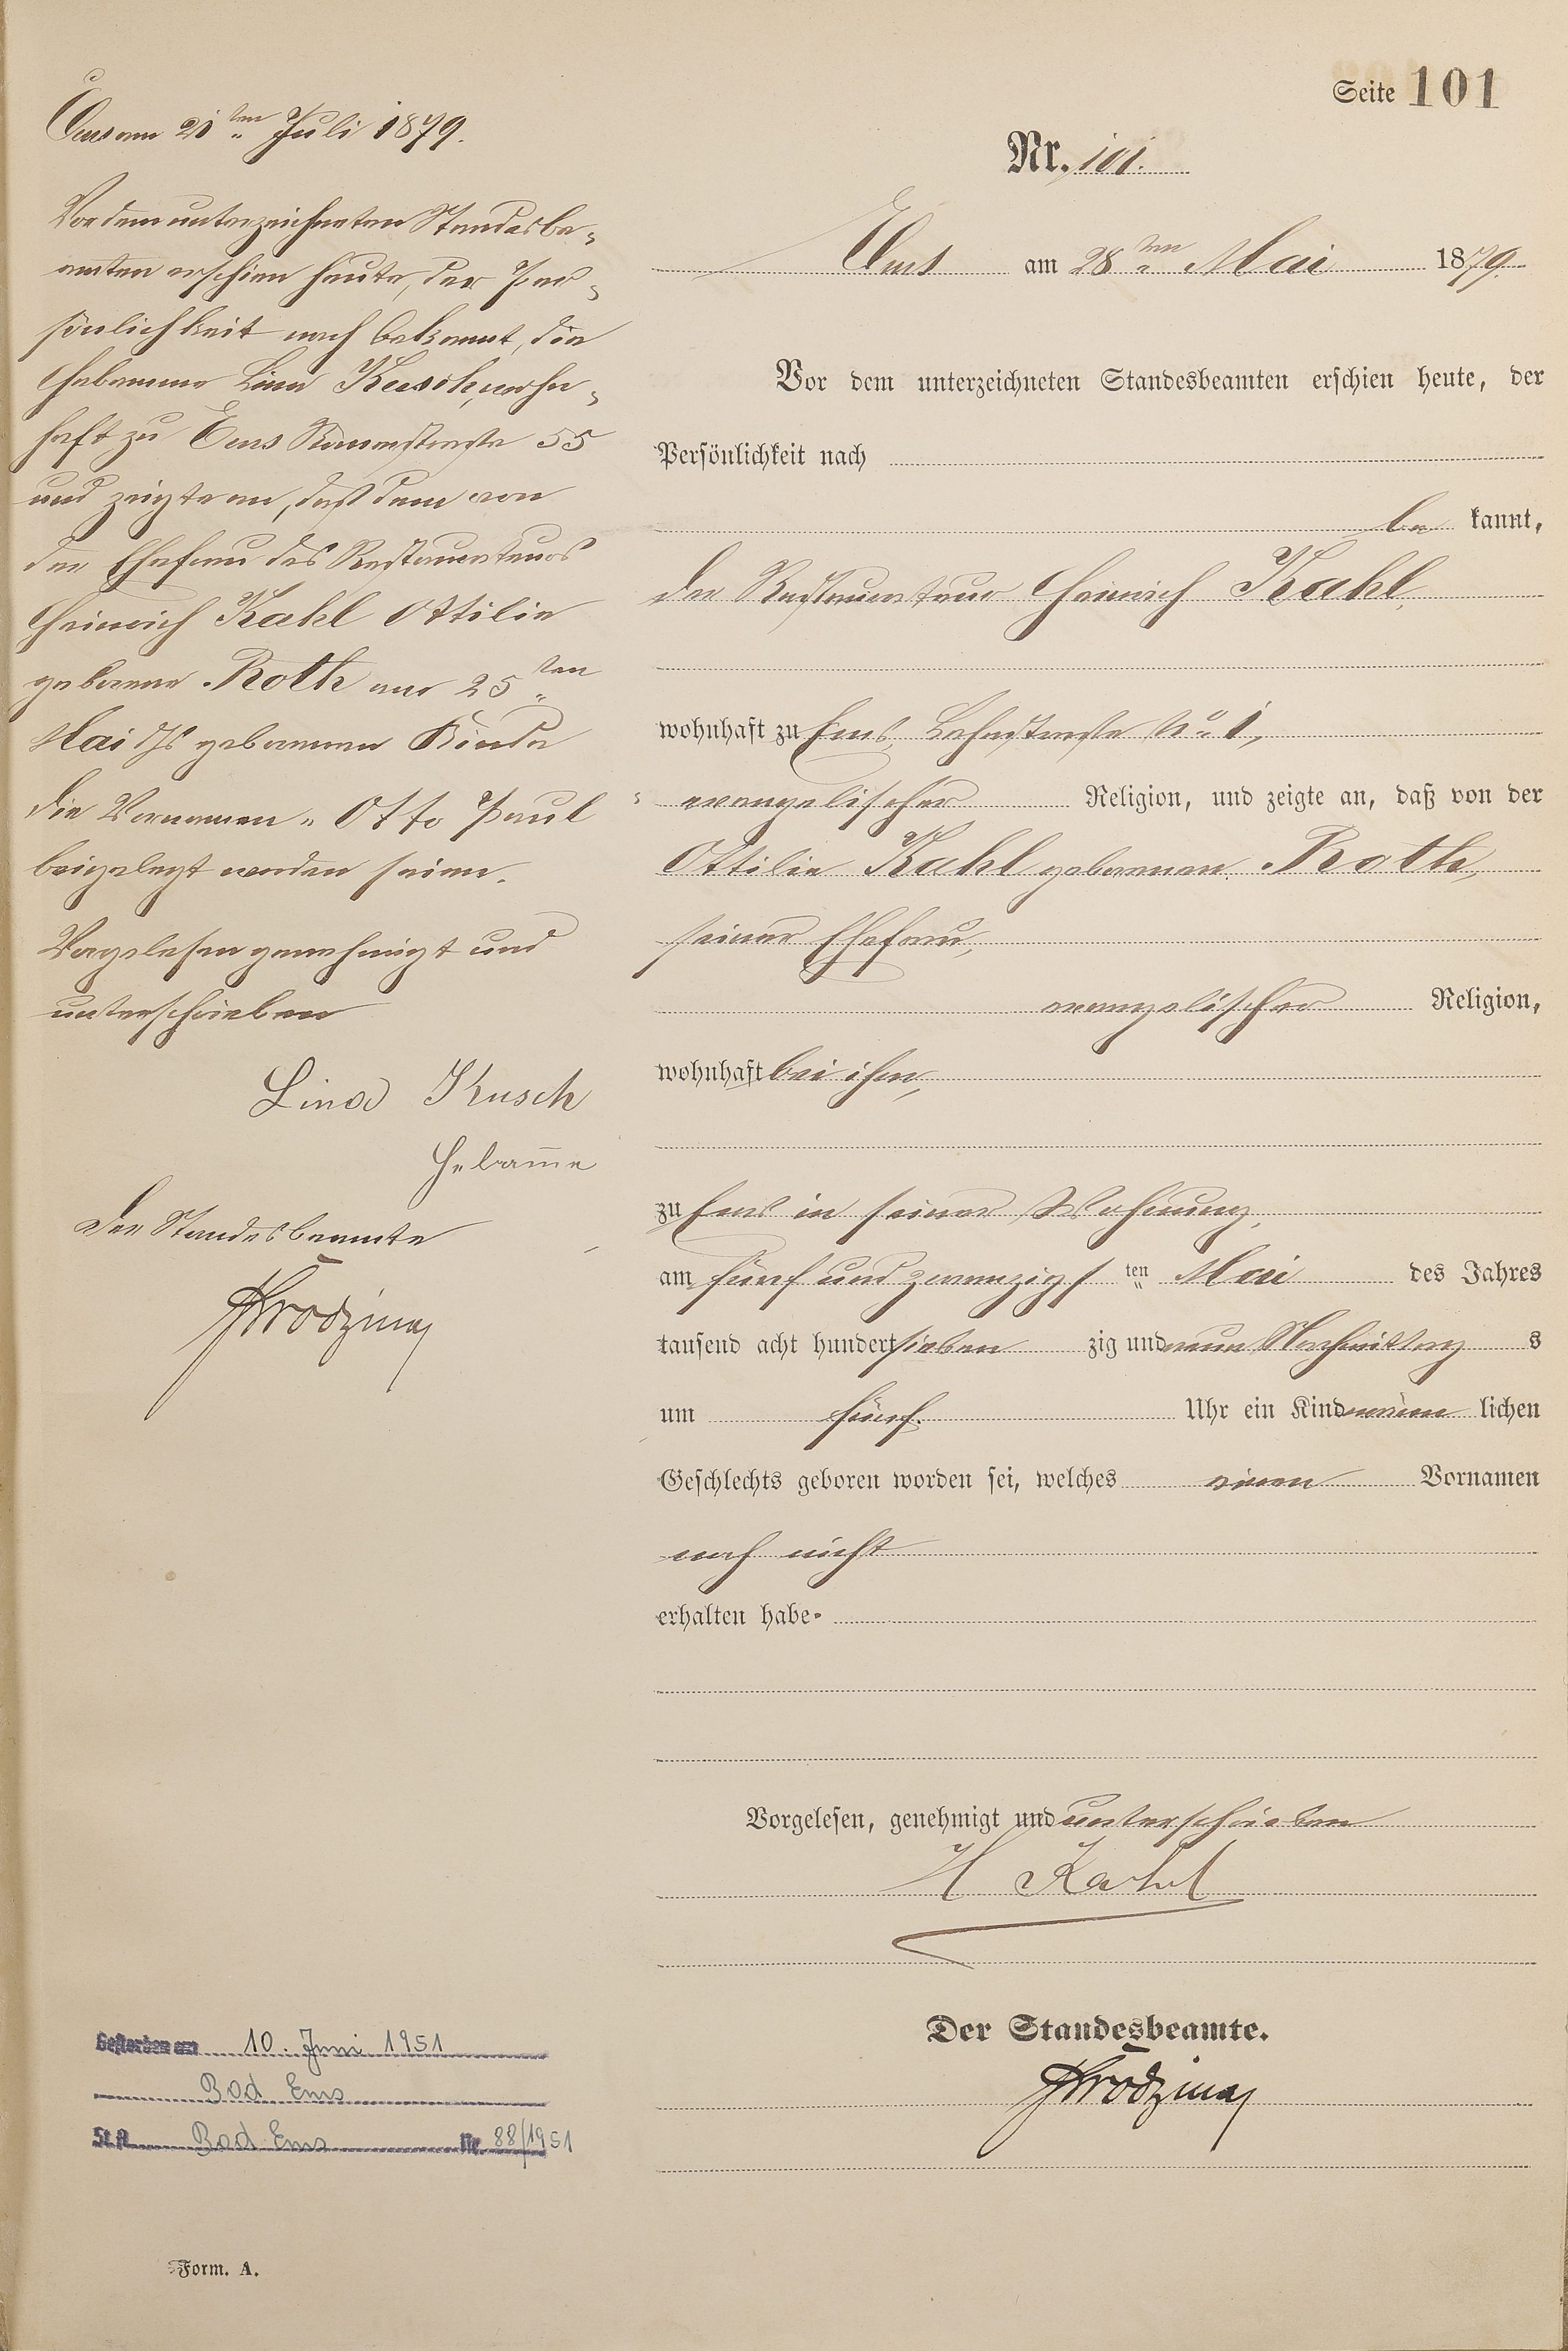 Seite 101
Nr. 101.
Ems am 28ten Mai 1879.
Vor dem unterzeichneten Standesbeamten erschien heute, der
Persönlichkeit nach
be kannt,
der Restaurateur Heinrich Kahl,
wohnhaft zu Ems, Lahnstraße No 1,
evangelischer Religion, und zeigte an, daß von der
Ottilie Kahl geborenen Roth,
seiner Ehefrau,
evangelischer Religion,
wohnhaft bei ihm,
zu Ems in seiner Wohnung,
am fünf und zwanzigs ten Mai des Jahres
tausend acht hundert sieben zig und neun Nachmittag s
um fünf Uhr ein Kind männ lichen
Geschlechts geboren worden sei, welches einen Vornamen
noch nicht
erhalten habe.
Vorgelesen, genehmigt und unterschrieben
H Kahl
Der Standesbeamte.
Ems am 21ten Juli 1879.
Vor dem unterzeichneten Standesbe-
amten erschien heute, der Per-
sönlichkeit nach bekannt, die
Hebamme Lina Kusch, wohn-
haft zu Ems 55
und zeigte an, daß dem von
der Ehefrau des Restaurateurs
Heinrich Kahl Ottilie
geborene Roth am 25ten
Mai d Js geborenen Kinde
die Vornamen „Otto Paul
beigelegt worden seien.
Vorgelesen genehmigt und
unterschrieben
Lina Kusch
Hebamme
Der Standesbeamte
Gestorben am 10. Juni 1951
Bad Ems
St.A. Bad Ems Nr. 88/1951
Form. A.